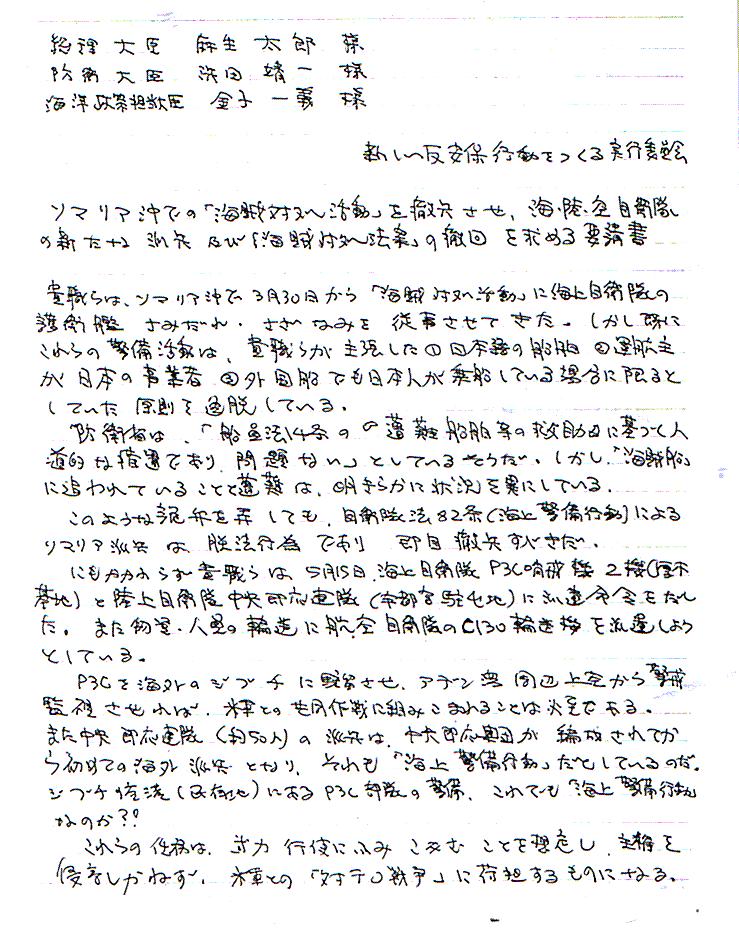 総理大臣 麻生太郎 様
防衛大臣 浜田靖一 様
海洋政策担当大臣 金子一義 様
新しい反安保行動をつくる実行委員会
ソマリア沖での「海賊対処活動」を撤兵させ、海・陸・空自衛隊
の新たな派兵及び「海賊対処法案」の撤回を求める要請書
貴職らは、ソマリア沖で3月30日から「海賊対処活動」に海上自衛隊の
護衛艦さみだれ・さざなみを従事させてきた。しかし既に
これらの警備活動は、貴職らが主張した①日本籍の船舶②運航主
が日本の事業者③外国船でも日本人が乗船している場合に限ると
していた原則を逸脱している。
防衛省は、「船員法14条の『遭難船舶等の救助』に基づく人
道的な措置であり、問題ない」としているそうだ。しかし「海賊船」
に追われていることと遭難は、明きらかに状況を異にしている。
このような詭弁を弄しても、自衛隊法82条(海上警備行動)による
ソマリア派兵は、脱法行為であり即日撤兵すべきだ。
にもかかわらず貴職らは、5月15日、海上自衛隊P3C哨戒機2機(厚木
基地)と陸上自衛隊中央即応連隊(宇都宮駐屯地)に派遣命令をだし
た。また物資・人員の輸送に航空自衛隊のC130輸送機を派遣しよう
としている。
P3Cを海外のジブチに駐留させ、アデン湾周辺上空から警戒
監視させれば、米軍との共同作戦に組みこまれることは必至である。
また中央即応連隊(約50人)の派兵は、中央即応集団が編成されてか
ら初めての海外派兵となり、それも「海上警備行動」だとしているのだ。
ジブチ(所在地)にあるP3C部隊の警備、これでも「海上警備行動」
なのか?!
これらの任務は、武力行使にふみこむことを想定し、主権を
侵害しかねず、米軍との「対テロ戦争」に荷担するものになる。